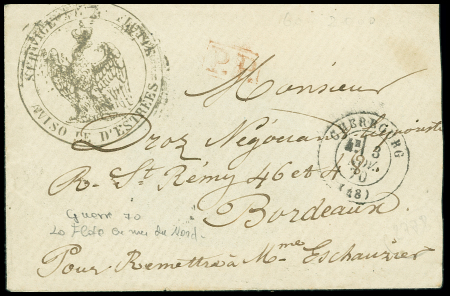 SERVICE
AVISO LE D'ESTRÉES
P.D.
Monsieur
Droz Négociant
R. St. Rémy 46 et 4
Bordeaux
CHERBOURG
3
NOV.
70
(48)
Guerre 70
La Flotte en mer du Nord.
Pour Remettre à Mme Eschauzier